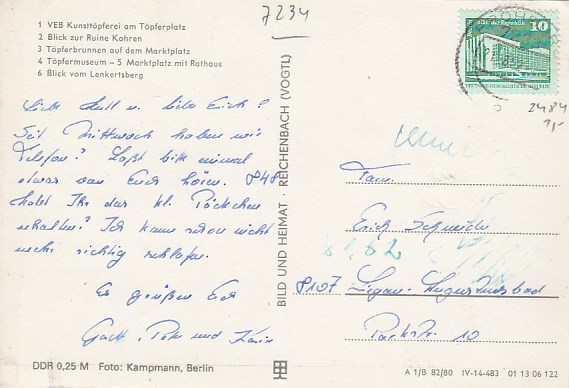 7234
1 VEB Kunsttöpferei am Töpferplatz
2 Blick zur Ruine Kohren
3 Töpferbrunnen auf dem Marktplatz
4 Töpfermuseum – 5 Marktplatz mit Rathaus
6 Blick vom Lenkertsberg
10
2484
Seit Mittwoch haben wir
Telefon! Laßt bitte einmal
etwas von Euch hören. 848
habt Ihr das kl. Päckchen
erhalten? Ich kann schon nicht
mehr richtig schlafen.
Es grüßen Euch
und Karin
BILD UND HEIMAT REICHENBACH (VOGTL)
Fam.
Erich
8107 Augustusbad
Parkstr. 10
DDR 0,25 M Foto: Kampmann, Berlin
A 1/B 82/80 IV-14-483 01 13 06 122